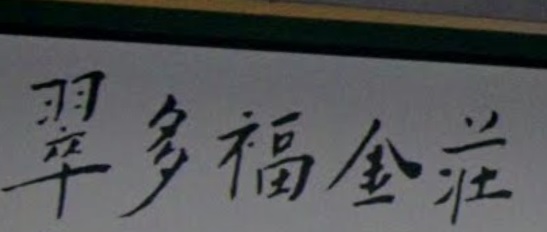 翠多福金莊